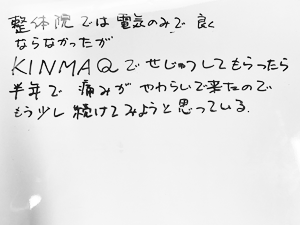 整体院では電気のみで良く
ならなかったが
KINMAQでせじゅつしてもらったら
半年で痛みがやわらいで来たので
もう少し続けてみようと思っている。